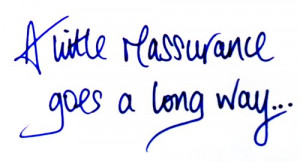 A little reassurance
goes a long way...